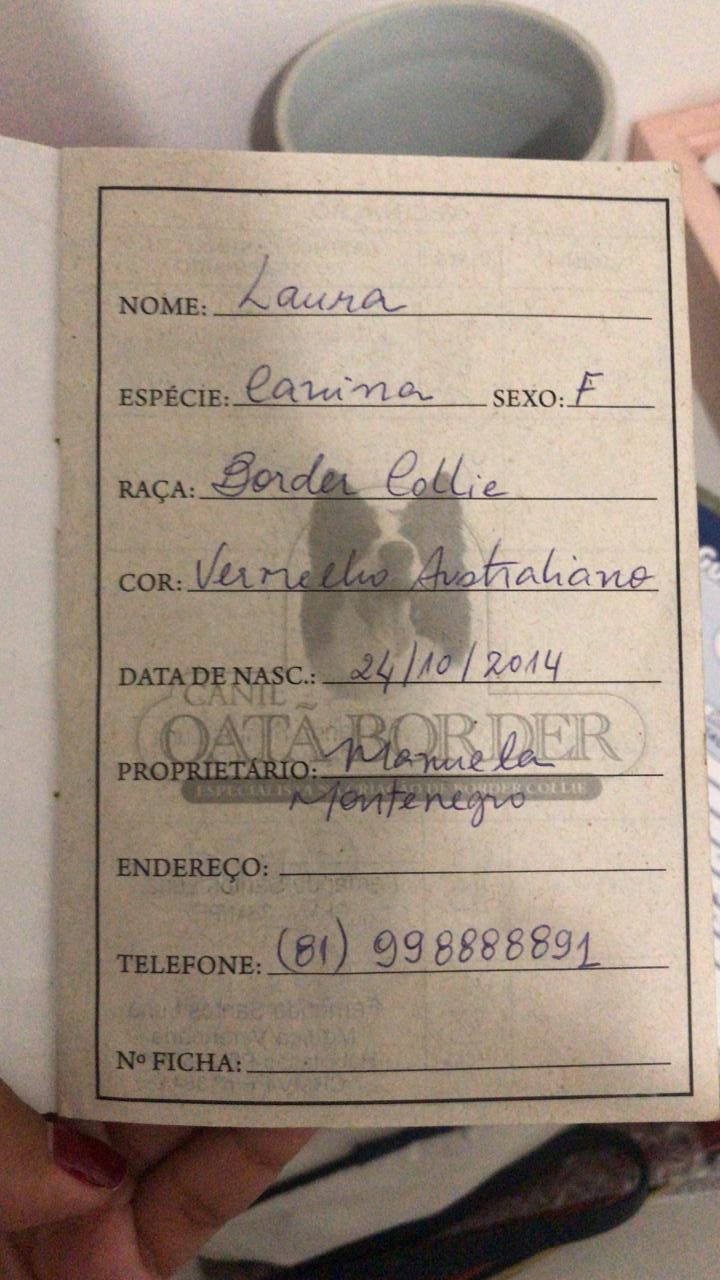 NOME: Laura
ESPÉCIE: Canina SEXO: F
RAÇA: Border Collie
COR: Vermelho Australiano
DATA DE NASC.: 24/10/2014
CANIL
OATÃ BORDER
PROPRIETÁRIO: Manuela
ESPECIALISTA NA CRIAÇÃO DE BORDER COLLIE
Montenegro
ENDEREÇO:
TELEFONE: (81) 998888891
Nº FICHA: